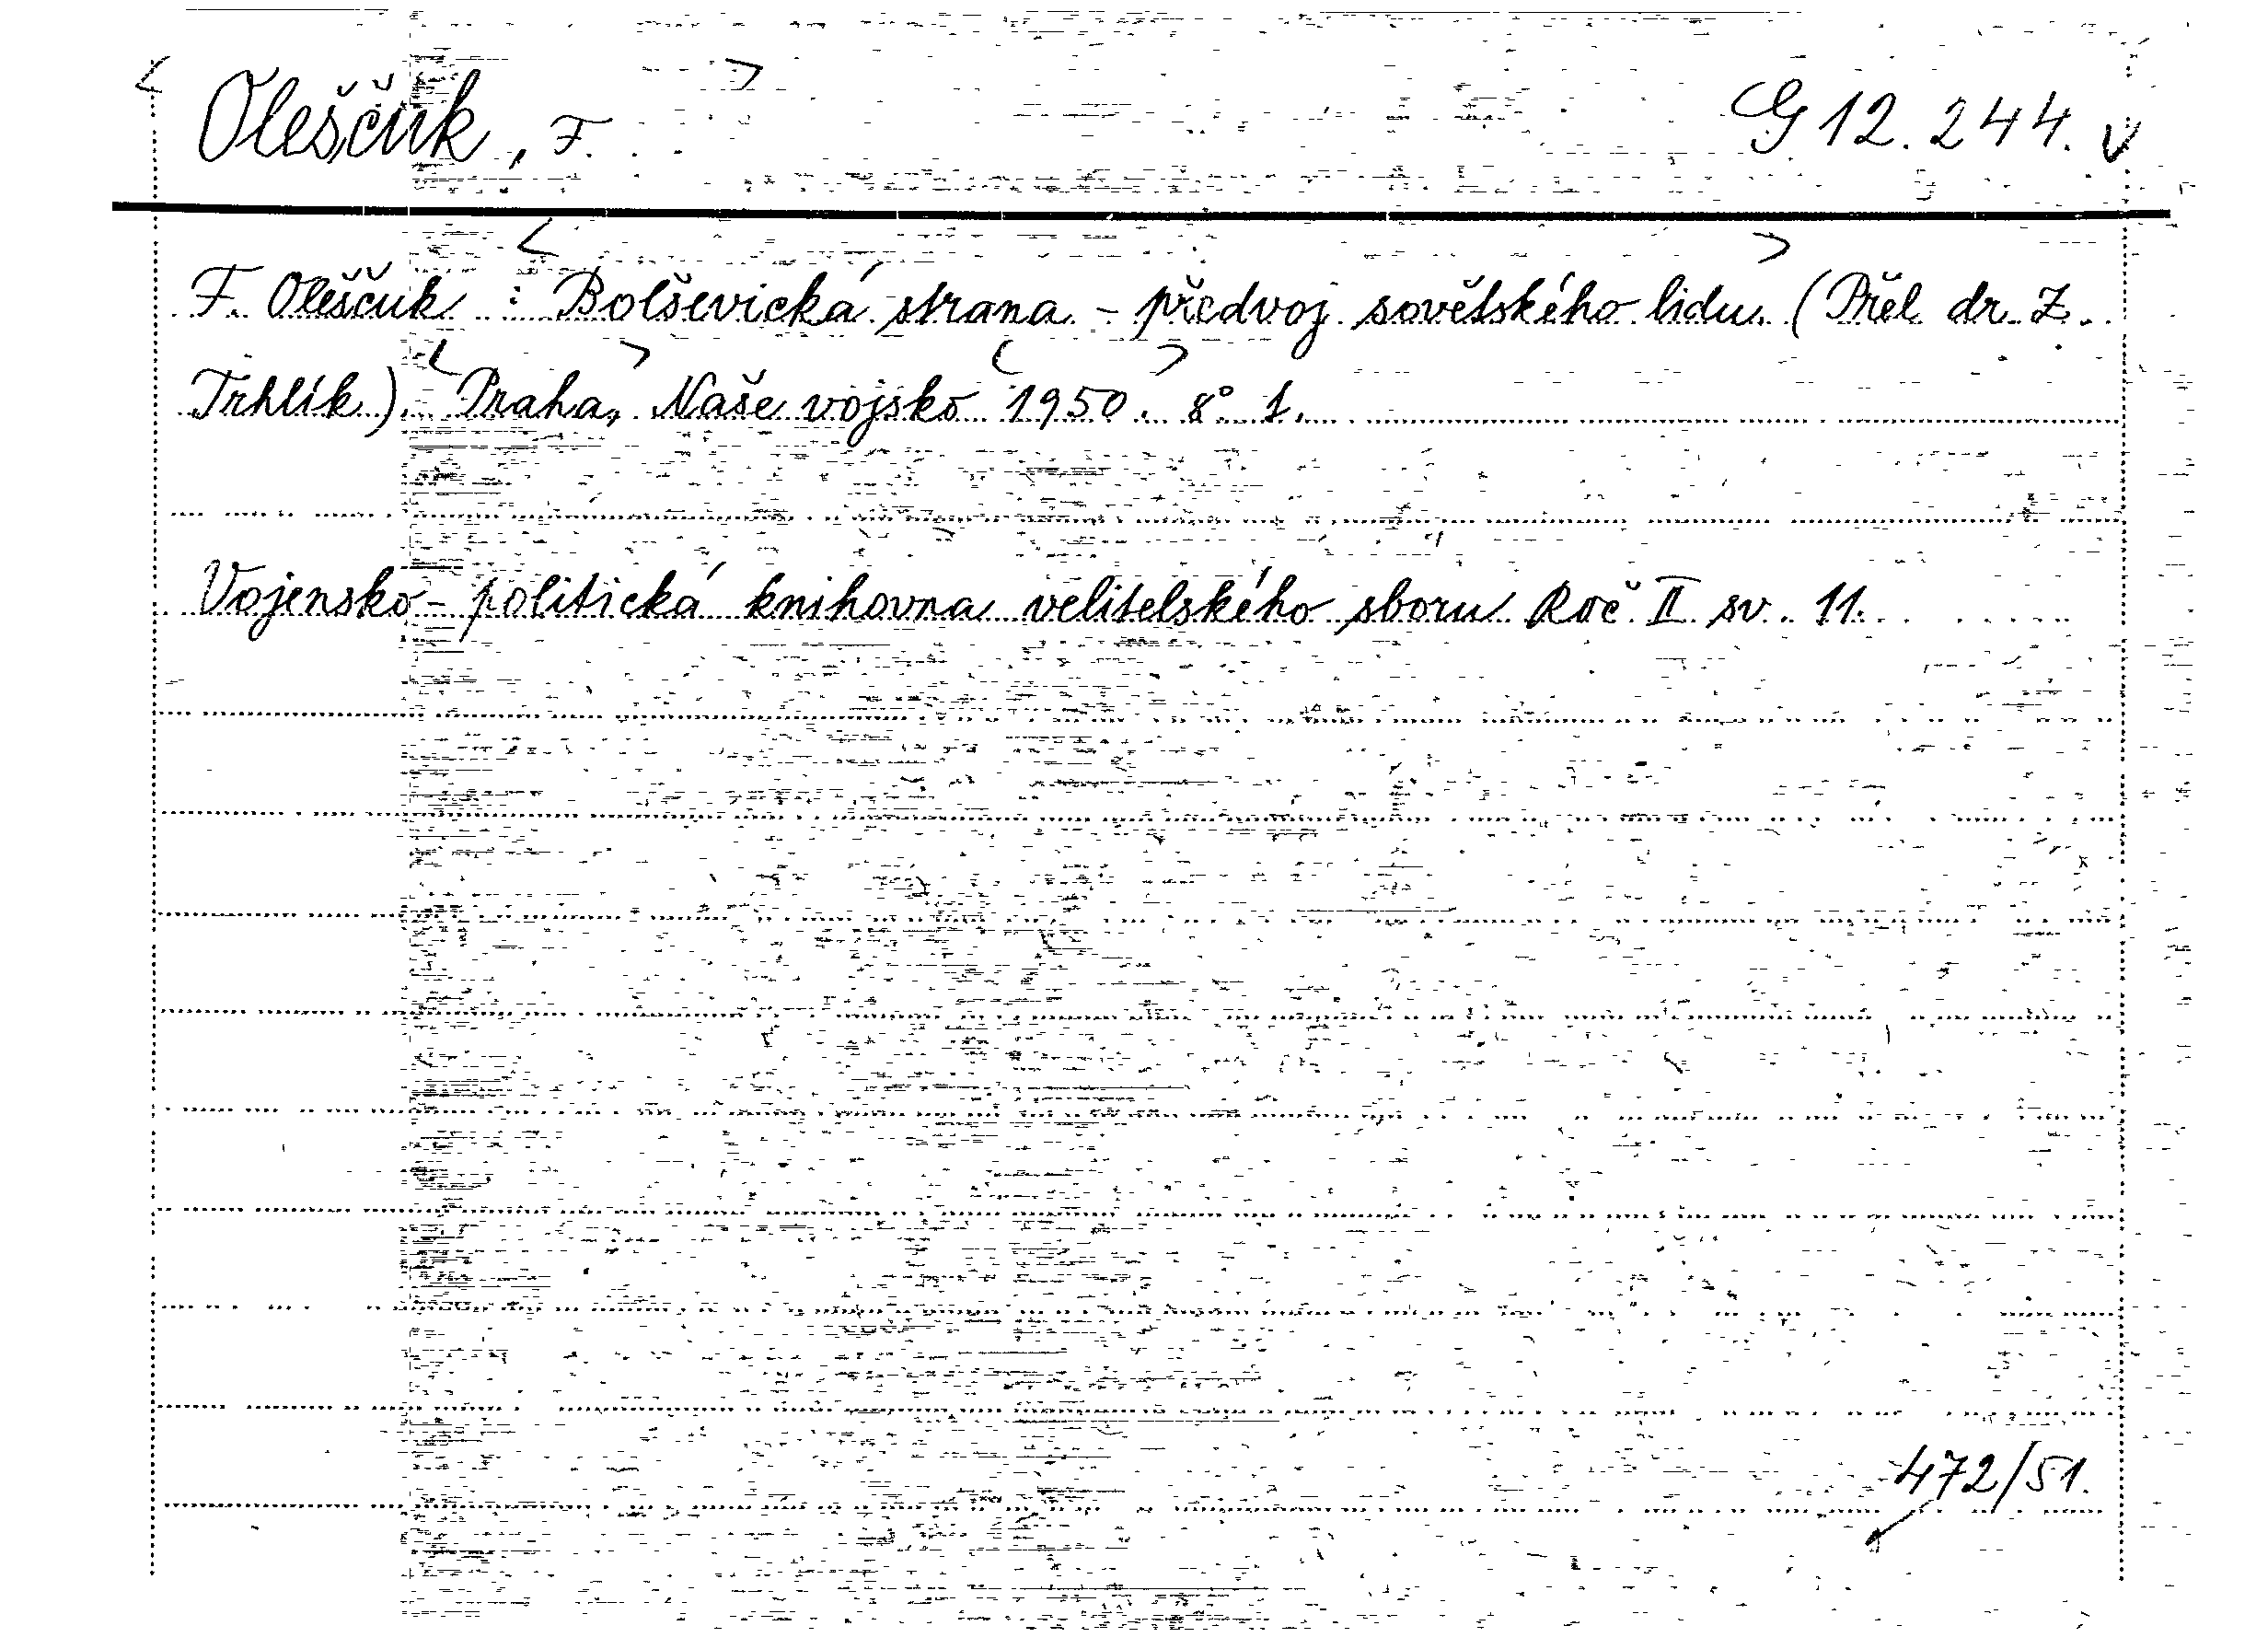 Oleščuk, F. G 12.244.
F. Oleščuk : Bolševická strana - předvoj sovětského lidu. (Přel. dr. Z.
Trhlík). Praha, Naše vojsko 1950. 8° 1.
Vojensko-politická knihovna velitelského sboru Roč. II sv. 11.
472/51.